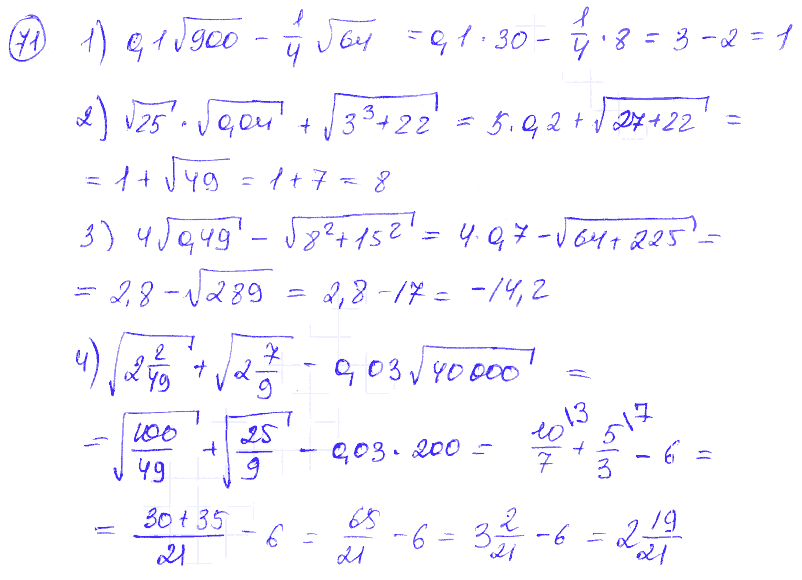 71 1) 0,1√900 - 1/4 √64 = 0,1 · 30 - 1/4 · 8 = 3 - 2 = 1
2) √25 · √0,04 + √(3³+22) = 5 · 0,2 + √(27+22) =
= 1 + √49 = 1 + 7 = 8
3) 4√0,49 - √(8²+15²) = 4 · 0,7 - √(64+225) =
= 2,8 - √289 = 2,8 - 17 = -14,2
4) √(2 2/49) + √(2 7/9) - 0,03√40000 =
= √(100/49) + √(25/9) - 0,03 · 200 = 10/7 \3 + 5/3 \7 - 6 =
= (30+35)/21 - 6 = 65/21 - 6 = 3 2/21 - 6 = 2 19/21